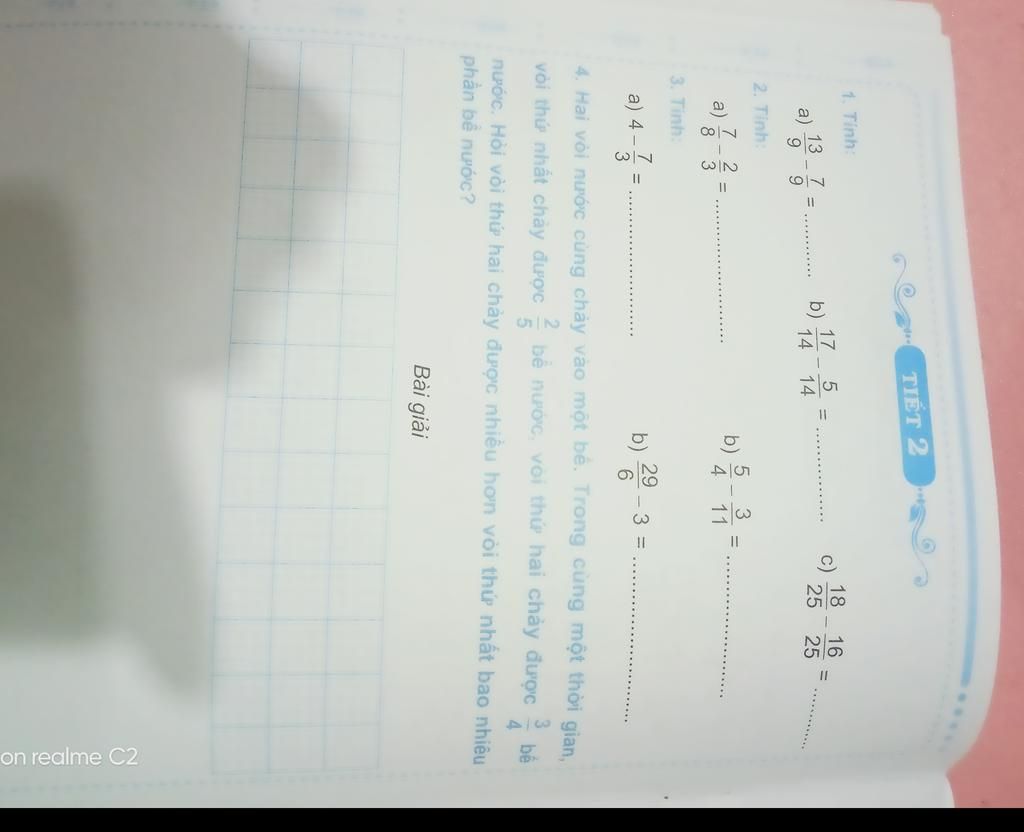 TIẾT 2
1. Tính:
a) 13/9 - 7/9 = ............ b) 17/14 - 5/14 = ................ c) 18/25 - 16/25 = ............
2. Tính:
a) 7/8 - 2/3 = .......................... b) 5/4 - 3/11 = ..........................
3. Tính:
a) 4 - 7/3 = .......................... b) 29/6 - 3 = ..............................
4. Hai vòi nước cùng chảy vào một bể. Trong cùng một thời gian,
vòi thứ nhất chảy được 2/5 bể nước, vòi thứ hai chảy được 3/4 bể
nước. Hỏi vòi thứ hai chảy được nhiều hơn vòi thứ nhất bao nhiêu
phần bể nước?
Bài giải
on realme C2